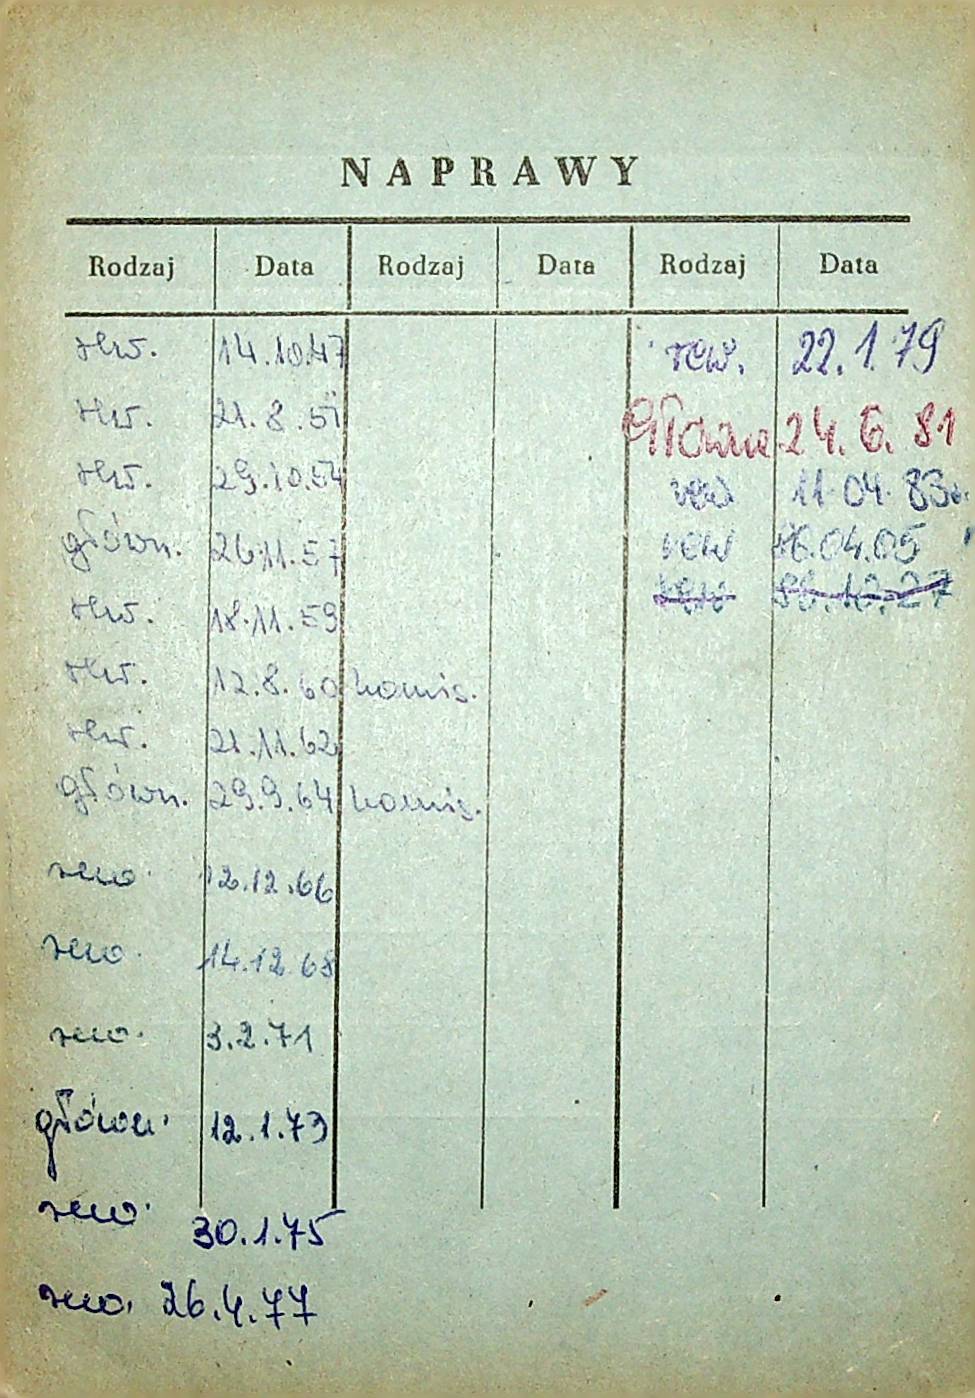 NAPRAWY
Rodzaj Data Rodzaj Data Rodzaj Data
rew. 14.10.47
rew. 21.8.51
rew. 29.10.54
główn. 26.11.57
rew. 18.11.59
rew. 12.8.60 komis.
rew. 21.11.62
główn. 29.9.64 komis.
rew. 12.12.66
rew. 14.12.68
rew. 3.2.71
główn. 12.1.73
rew. 30.1.75
rew. 26.4.77
rew. 22.1.79
Główna 24.6.81
rew 11.04.83r.
rew .04.05
rew